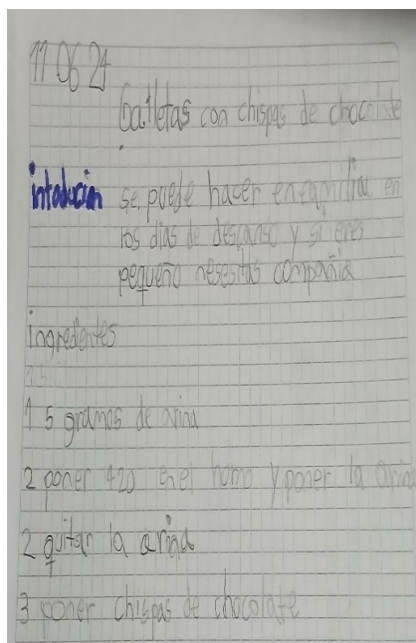 11 06 24
Galletas con chispas de chocolate
intoducion se puede hacer en familia en
los dias de descanso y si eres
pequeño nesesitas compañia
ingredientes
1 5 gramos de arina
2 poner 420 en el horno y poner la arina
2 quitar la arina
3 poner chispas de chocolate